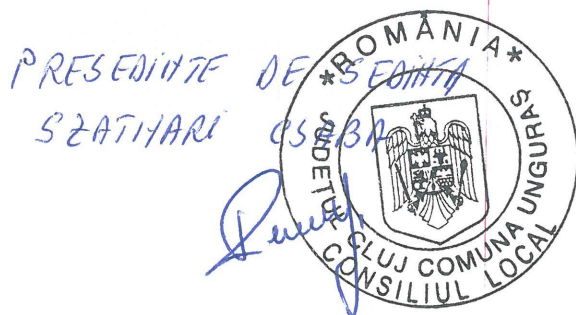 PRESEDINTE DE SEDINTA
SZATMARI CSABA
*ROMÂNIA*
JUDEȚUL CLUJ COMUNA UNGURAȘ
CONSILIUL LOCAL